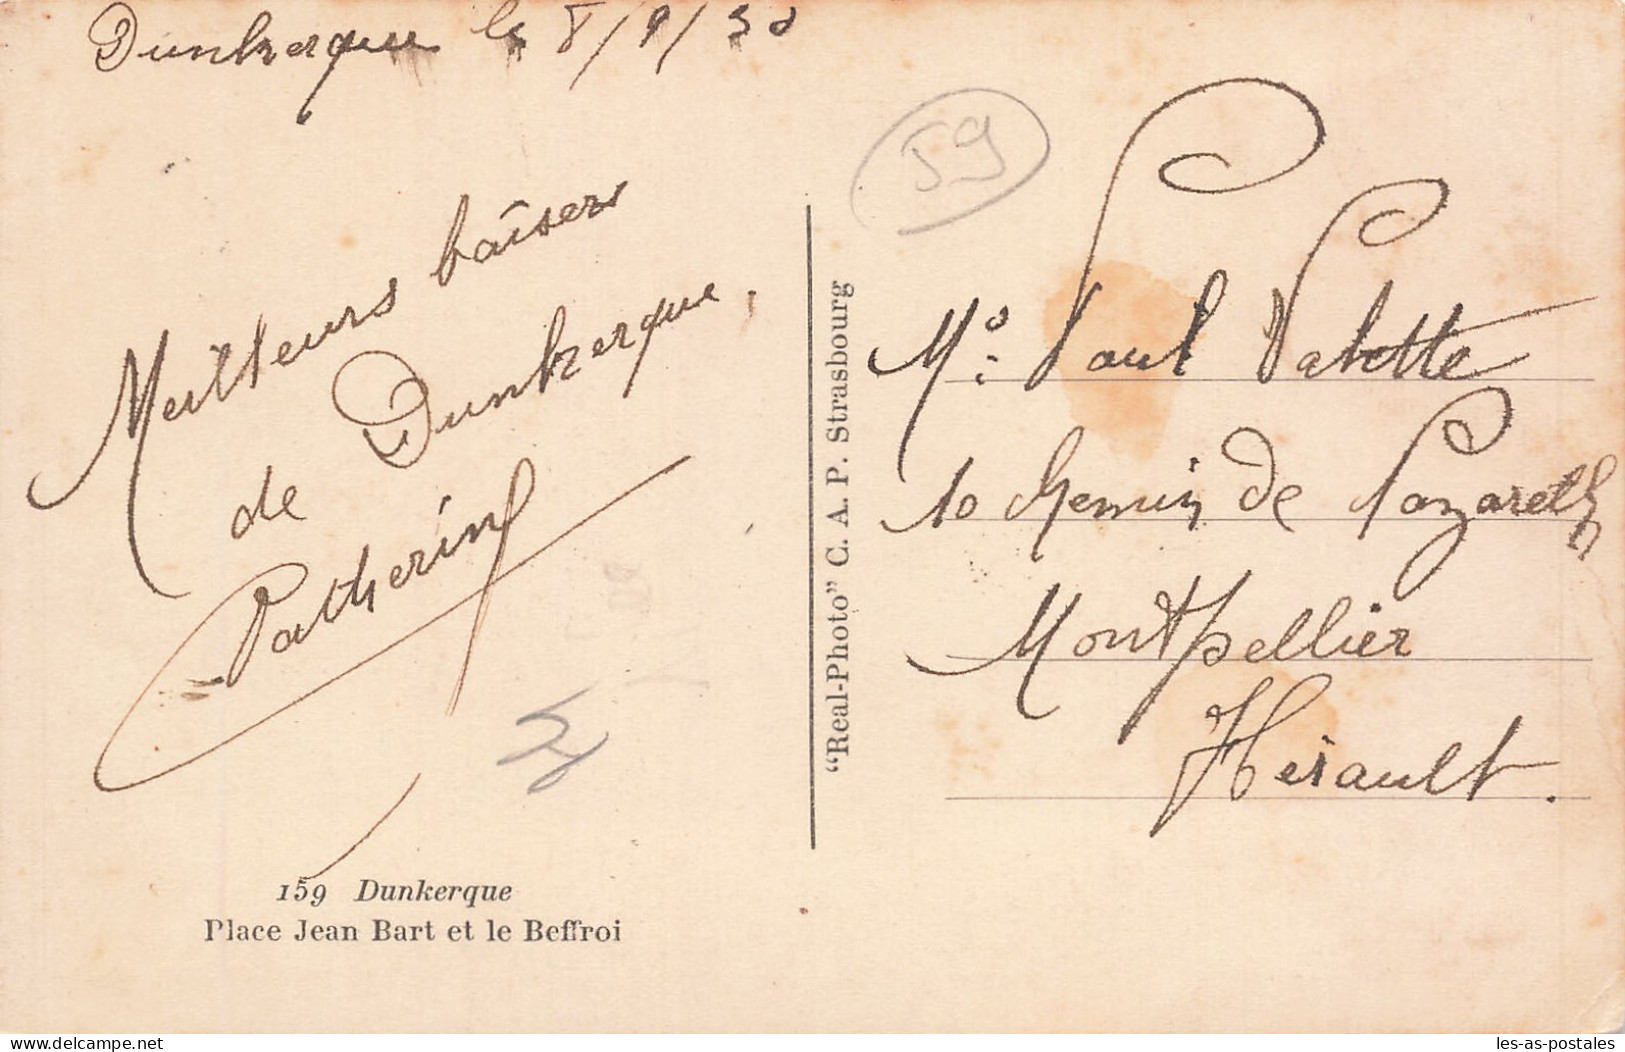 Dunkerque le 8/9/30
59
Meilleurs baîsers
de Dunkerque.
Catherine
159 Dunkerque
Place Jean Bart et le Beffroi
"Real-Photo" C. A. P. Strasbourg
Mr. Paul Valette
10 chemin de Nazareth
Montpellier
Hérault.
delcampe.net
les-as-postales